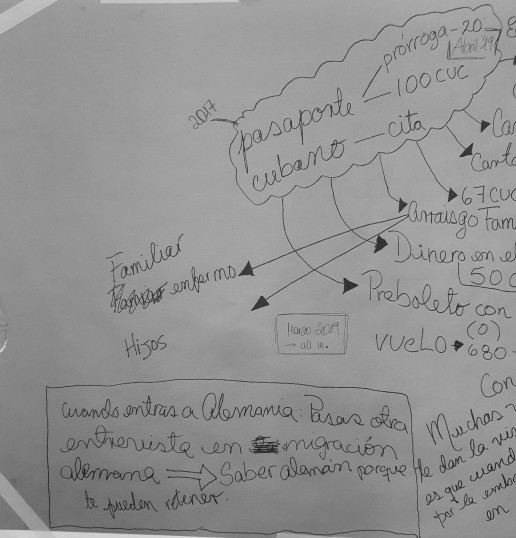 prórroga - 20
Abril '19
100 CUC
2017
pasaporte
cubano — cita
67 CUC
Arraisgo Fam
Familiar
enfermo
Dinero en el
50
Preboleto con
Hijos
Marzo 2019
→ all in.
VUELO → 680
(0)
Con
Muchas
te dan la
es que cuand
por la emba
en
cuando entras a Alemania: Pasas otra
entrevista en migración
alemana ⇒ Saber alamán porque
te pueden retener.